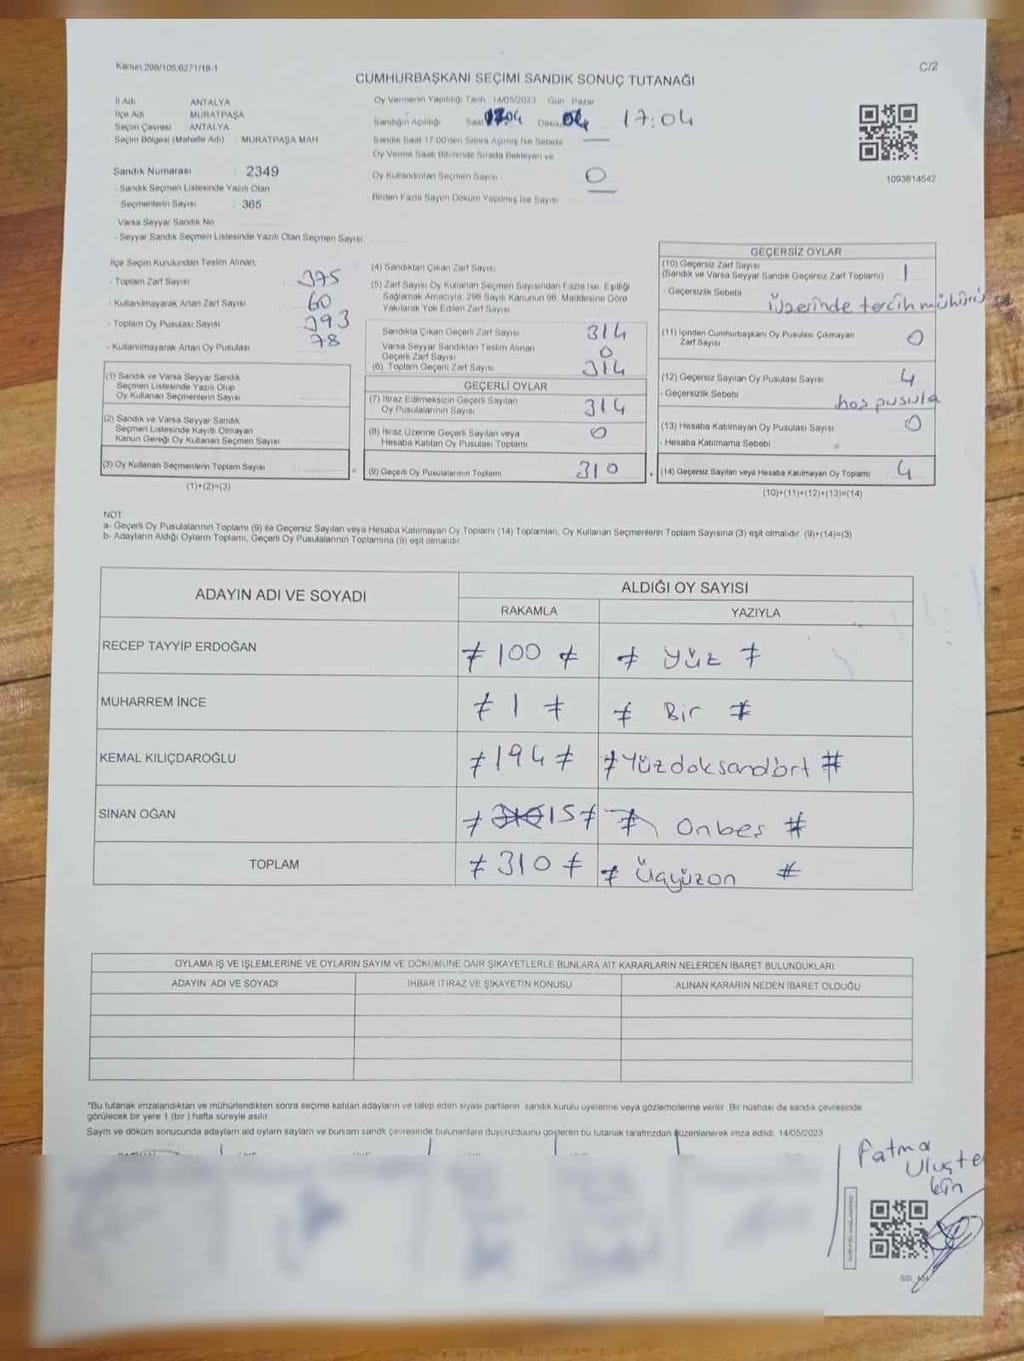 Kanun.298/105,6271/18-1
C/2
CUMHURBAŞKANI SEÇİMİ SANDIK SONUÇ TUTANAĞI
İl Adı ANTALYA
İlçe Adı MURATPAŞA
Seçim Çevresi ANTALYA
Seçim Bölgesi (Mahalle Adı) MURATPAŞA MAH
Sandık Numarası : 2349
- Sandık Seçmen Listesinde Yazılı Olan
Seçmenlerin Sayısı : 365
Varsa Seyyar Sandık No
- Seyyar Sandık Seçmen Listesinde Yazılı Olan Seçmen Sayısı
Oy Vermenin Yapıldığı Tarih 14/05/2023 Gün Pazar
Sandığın Açıldığı Saat 17:04 Dakika 04 17:04
Sandık Saat 17.00'den Sonra Açılmış İse Sebebi —
Oy Verme Saati Bitiminde Sırada Bekleyen ve
Oy Kullandırılan Seçmen Sayısı 0
Birden Fazla Sayım Döküm Yapılmış İse Sayısı
1093814542
İlçe Seçim Kurulundan Teslim Alınan
- Toplam Zarf Sayısı 375
- Kullanılmayarak Artan Zarf Sayısı 60
- Toplam Oy Pusulası Sayısı 393
- Kullanılmayarak Artan Oy Pusulası 78
(1) Sandık ve Varsa Seyyar Sandık
Seçmen Listesinde Yazılı Olup
Oy Kullanan Seçmenlerin Sayısı
(2) Sandık ve Varsa Seyyar Sandık
Seçmen Listesinde Kayıtlı Olmayan
Kanun Gereği Oy Kullanan Seçmen Sayısı
(3) Oy Kullanan Seçmenlerin Toplam Sayısı
(1)+(2)=(3)
(4) Sandıktan Çıkan Zarf Sayısı
(5) Zarf Sayısı Oy Kullanan Seçmen Sayısından Fazla İse, Eşitliği
Sağlamak Amacıyla, 298 Sayılı Kanunun 98. Maddesine Göre
Yakılarak Yok Edilen Zarf Sayısı
Sandıkta Çıkan Geçerli Zarf Sayısı 314
Varsa Seyyar Sandıktan Teslim Alınan
Geçerli Zarf Sayısı 0
(6) Toplam Geçerli Zarf Sayısı 314
GEÇERLİ OYLAR
(7) İtiraz Edilmeksizin Geçerli Sayılan
Oy Pusulalarının Sayısı 314
(8) İtiraz Üzerine Geçerli Sayılan veya
Hesaba Katılan Oy Pusulası Toplamı 0
= (9) Geçerli Oy Pusulalarının Toplamı 310
GEÇERSİZ OYLAR
(10) Geçersiz Zarf Sayısı
(Sandık ve Varsa Seyyar Sandık Geçersiz Zarf Toplamı) 1
- Geçersizlik Sebebi
üzerinde tercih mührü
(11) İçinden Cumhurbaşkanı Oy Pusulası Çıkmayan
Zarf Sayısı 0
(12) Geçersiz Sayılan Oy Pusulası Sayısı 4
- Geçersizlik Sebebi
boş pusula
(13) Hesaba Katılmayan Oy Pusulası Sayısı 0
- Hesaba Katılmama Sebebi
(14) Geçersiz Sayılan veya Hesaba Katılmayan Oy Toplamı 4
(10)+(11)+(12)+(13)=(14)
NOT
a- Geçerli Oy Pusulalarının Toplamı (9) ile Geçersiz Sayılan veya Hesaba Katılmayan Oy Toplamı (14) Toplamları, Oy Kullanan Seçmenlerin Toplam Sayısına (3) eşit olmalıdır. (9)+(14)=(3)
b- Adayların Aldığı Oyların Toplamı, Geçerli Oy Pusulalarının Toplamına (9) eşit olmalıdır
ADAYIN ADI VE SOYADI ALDIĞI OY SAYISI
RAKAMLA YAZIYLA
RECEP TAYYİP ERDOĞAN ≠ 100 ≠ ≠ Yüz ≠
MUHARREM İNCE ≠ 1 ≠ ≠ Bir ≠
KEMAL KILIÇDAROĞLU ≠ 194 ≠ ≠ Yüzdoksandört #
SİNAN OĞAN ≠ 15 ≠ ≠ Onbeş #
TOPLAM ≠ 310 ≠ ≠ Üçyüzon #
OYLAMA İŞ VE İŞLEMLERİNE VE OYLARIN SAYIM VE DÖKÜMÜNE DAİR ŞİKAYETLERLE BUNLARA AİT KARARLARIN NELERDEN İBARET BULUNDUKLARI
ADAYIN ADI VE SOYADI İHBAR İTİRAZ VE ŞİKAYETİN KONUSU ALINAN KARARIN NEDEN İBARET OLDUĞU
*Bu tutanak imzalandıktan ve mühürlendikten sonra seçime katılan adayların ve talep eden siyasi partilerin sandık kurulu üyelerine veya gözlemcilerine verilir. Bir nüshası da sandık çevresinde
görülecek bir yere 1 (bir) hafta süreyle asılır.
14/05/2023
Fatma